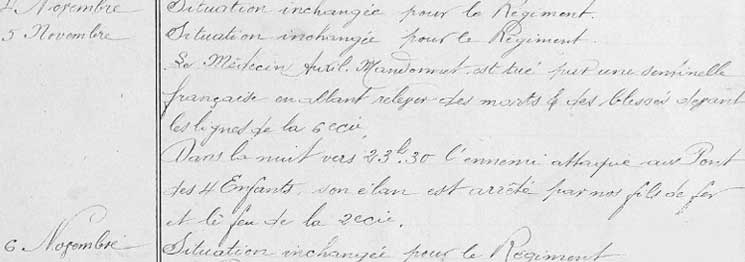 4 Novembre Situation inchangée pour le Régiment.
5 Novembre Situation inchangée pour le Régiment.
Le Médecin Auxil. Mandonnet est tué par une sentinelle
française en allant relever des morts & des blessés devant
les lignes de la 6e Cie.
Dans la nuit vers 23h.30 l'ennemi attaque au Pont
des 4 Enfants, son élan est arrêté par nos fils de fer
et le feu de la 2e Cie.
6 Novembre Situation inchangée pour le Régiment